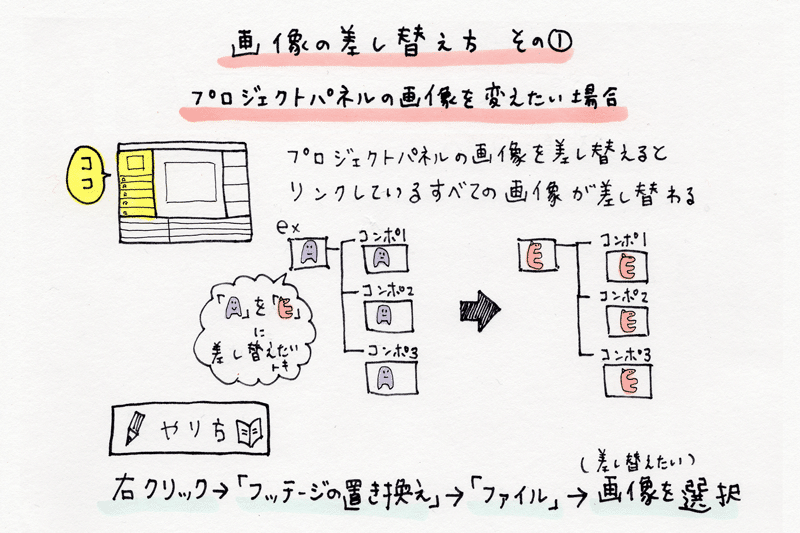 画像の差し替え方 その①
プロジェクトパネルの画像を変えたい場合
ココ
プロジェクトパネルの画像を差し替えると
リンクしているすべての画像が差し替わる
ex
コンポ1
コンポ2
コンポ3
「」を「」
に
差し替えたい
トキ
コンポ1
コンポ2
コンポ3
やり方
(差し替えたい)
右クリック→「フッテージの置き換え」→「ファイル」→画像を選択